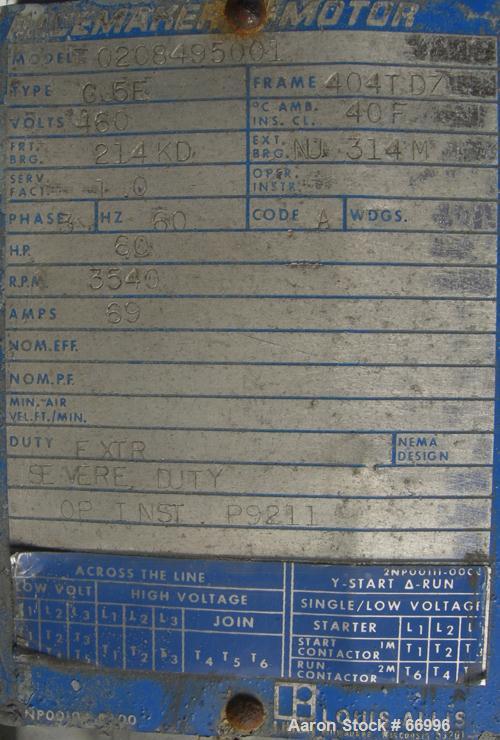 PACEMAKER MOTOR
MODEL 0208495001
TYPE G 5E FRAME 404T DZ
VOLTS 460 °C AMB. INS. CL. 40 F
FRT. BRG. 214 KD EXT. BRG. NU 314 M
SERV. FACT. 1.0 OPER. INSTR.
PHASE 3 HZ 60 CODE A WDGS.
H.P. 60
R.P.M. 3540
AMPS 69
NOM. EFF.
NOM. P.F.
MIN. AIR VEL. FT./MIN.
DUTY EXTR NEMA DESIGN
SEVERE DUTY
OP INST. P9211
ACROSS THE LINE
LOW VOLT HIGH VOLTAGE
T1 L2 L3 L1 L2 L3 JOIN
T1 T2 T3
T4 T5 T1 T2 T3 T4 T5 T6
Y-START Δ-RUN
SINGLE/LOW VOLTAGE
STARTER L1 L2 L
START CONTACTOR 1M T1 T2 T
RUN CONTACTOR 2M T6 T4 T
LOUIS ALLIS
Aaron Stock # 66996